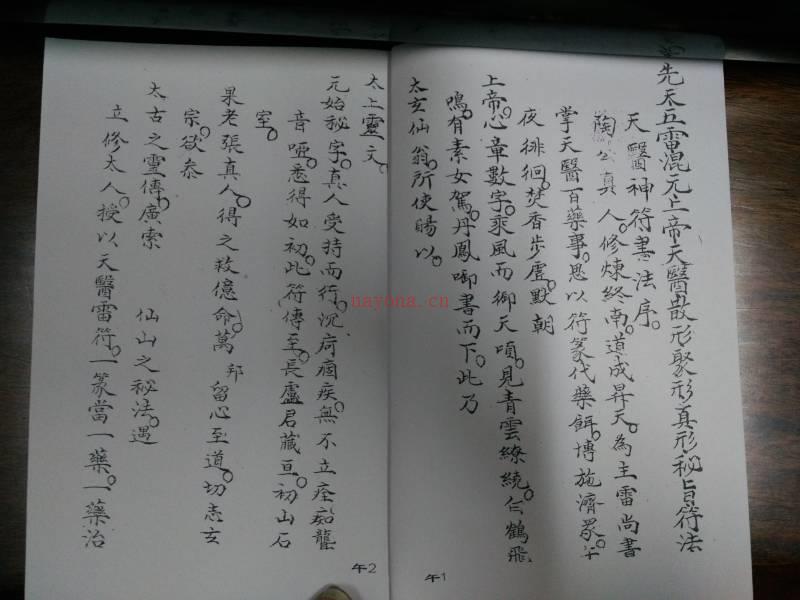 先天五雷混元上帝天醫散形聚形真形秘旨符法
天醫神符書法序。
陶公真人。修煉終南。道成昇天。為主雷尚書
掌天醫百藥事。思以符篆代藥餌。博施濟眾。
夜徘徊。焚香步虛。默朝
上帝。心章數字。乘風而御天。頃見青雲繚繞。仙鶴飛
鳴。有素女駕。丹鳳啣書而下。此乃
太玄仙翁。所使賜以。
午1
太上靈文。
元始秘字。真人受持而行。沉疴痼疾。無不立痊。聾
音啞。悉得如初。此符傳至。長盧君藏亘。初山石
室。
果老張真人。得之救億命。萬邦留心至道。切志玄
宗。欲泰
太古之靈傳。廣索仙山之秘法。遇
立修太人。授以天醫雷符。一篆當一藥。一藥治
午2
nayona.cn